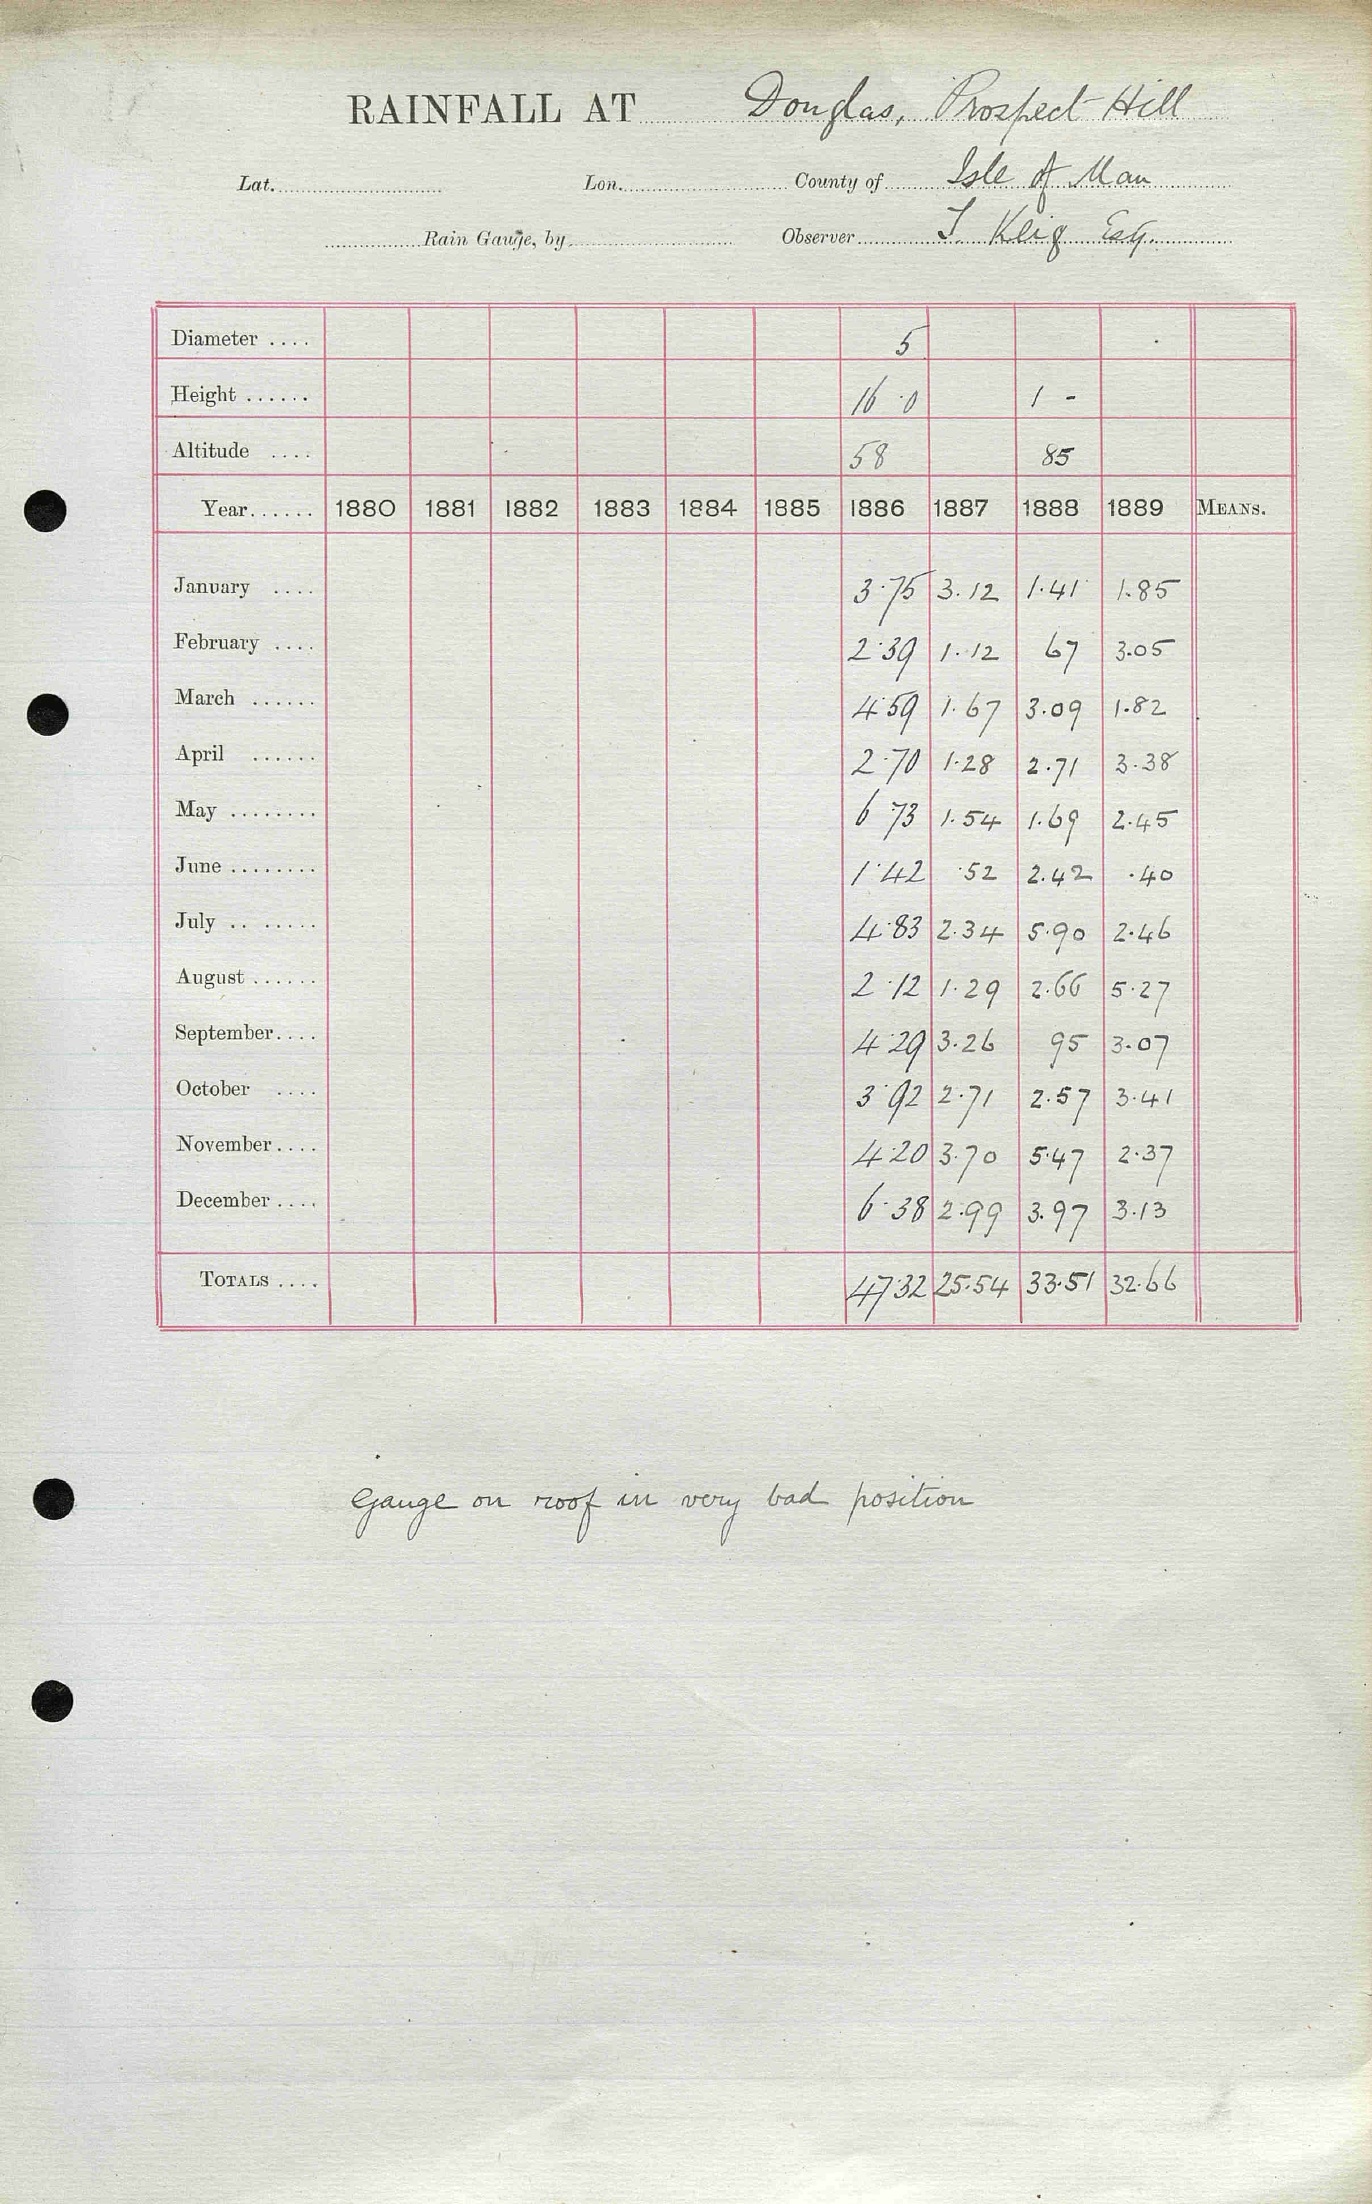 RAINFALL AT Douglas, Prospect Hill
Lat. Lon. County of Isle of Man
Rain Gauge, by Observer T. Keig Esq.
Diameter .... 5
Height ...... 16 0 1 -
Altitude .... 58 85
Year...... 1880 1881 1882 1883 1884 1885 1886 1887 1888 1889 MEANS.
January .... 3.75 3.12 1.41 1.85
February .... 2.39 1.12 67 3.05
March ...... 4.59 1.67 3.09 1.82
April ...... 2.70 1.28 2.71 3.38
May ........ 6 73 1.54 1.69 2.45
June ........ 1.42 .52 2.42 .40
July .. ...... 4.83 2.34 5.90 2.46
August ...... 2.12 1.29 2.66 5.27
September.... 4.29 3.26 95 3.07
October .... 3.92 2.71 2.57 3.41
November.... 4.20 3.70 5.47 2.37
December .... 6.38 2.99 3.97 3.13
TOTALS .... 47.32 25.54 33.51 32.66
Gauge on roof in very bad position